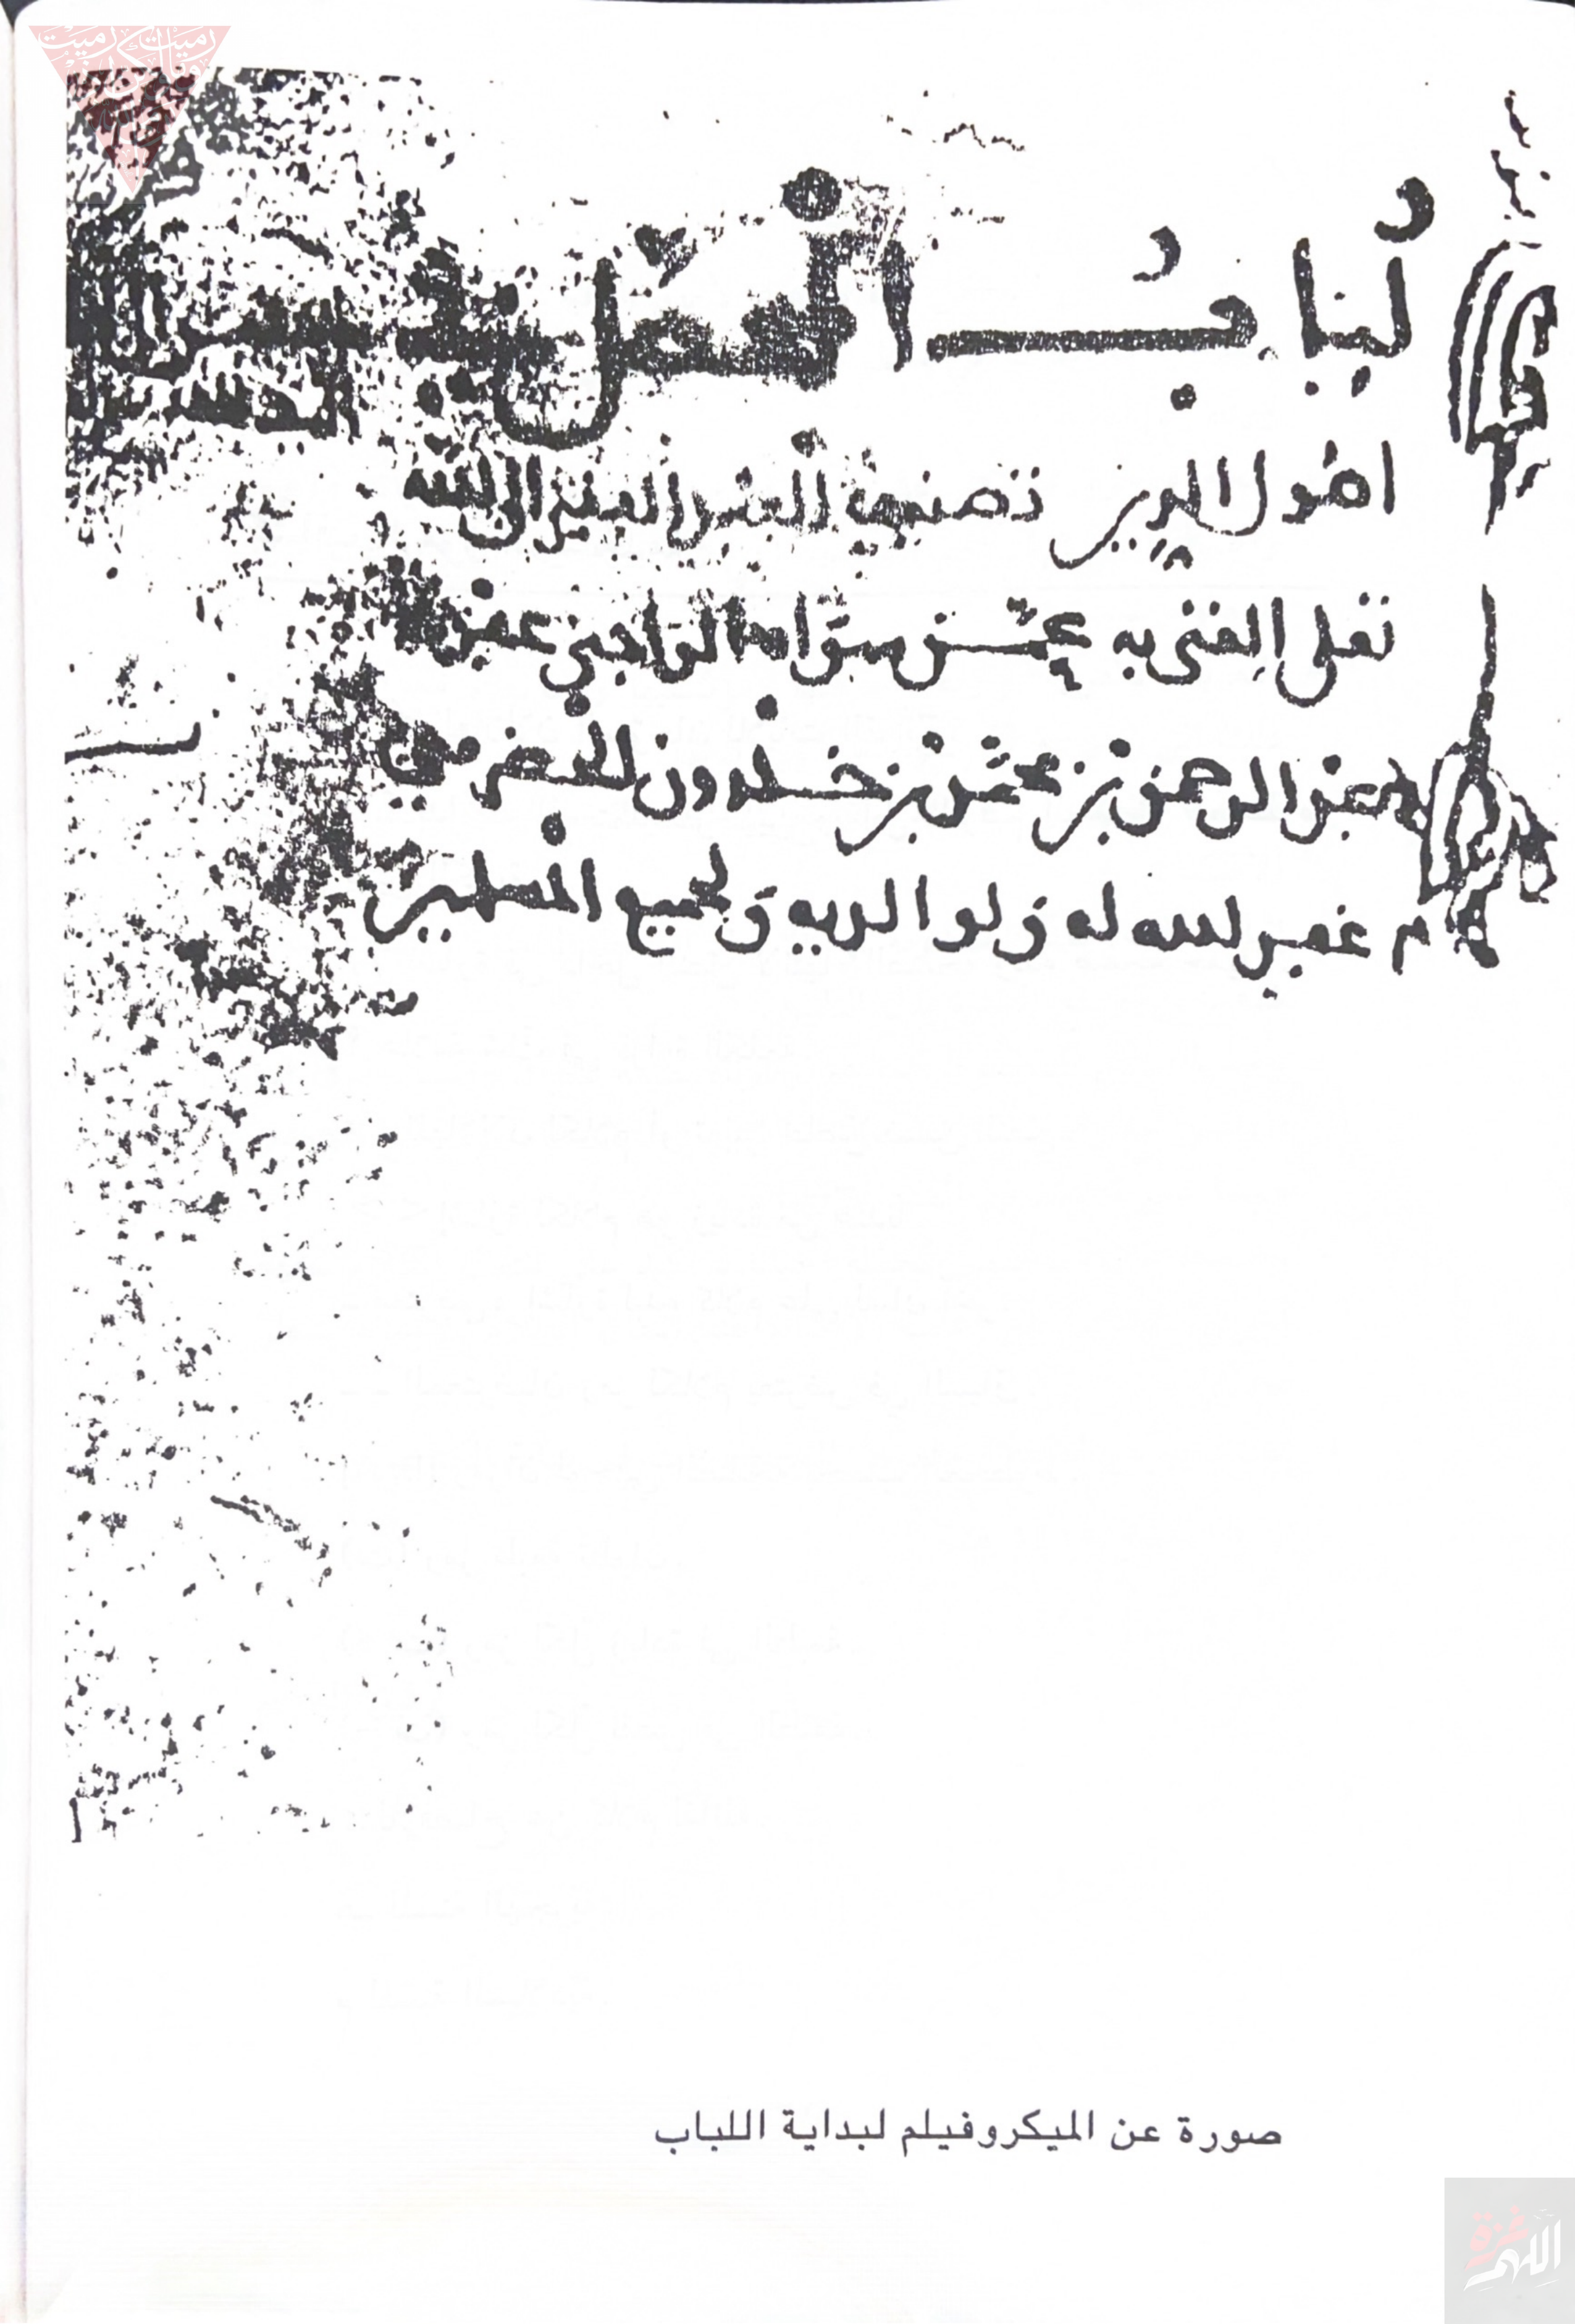 لُبَابُ المحصّل في
اصول الدين تصنيف العبد الفقير الى الله
تعلى الغني به عمّن سواه الراجي عفوه
عبد الرحمن بن محمد بن خلدون الحضرمي
غفر الله له ولوالديه ولجميع المسلمين
صورة عن الميكروفيلم لبداية اللباب
اللهم غزة